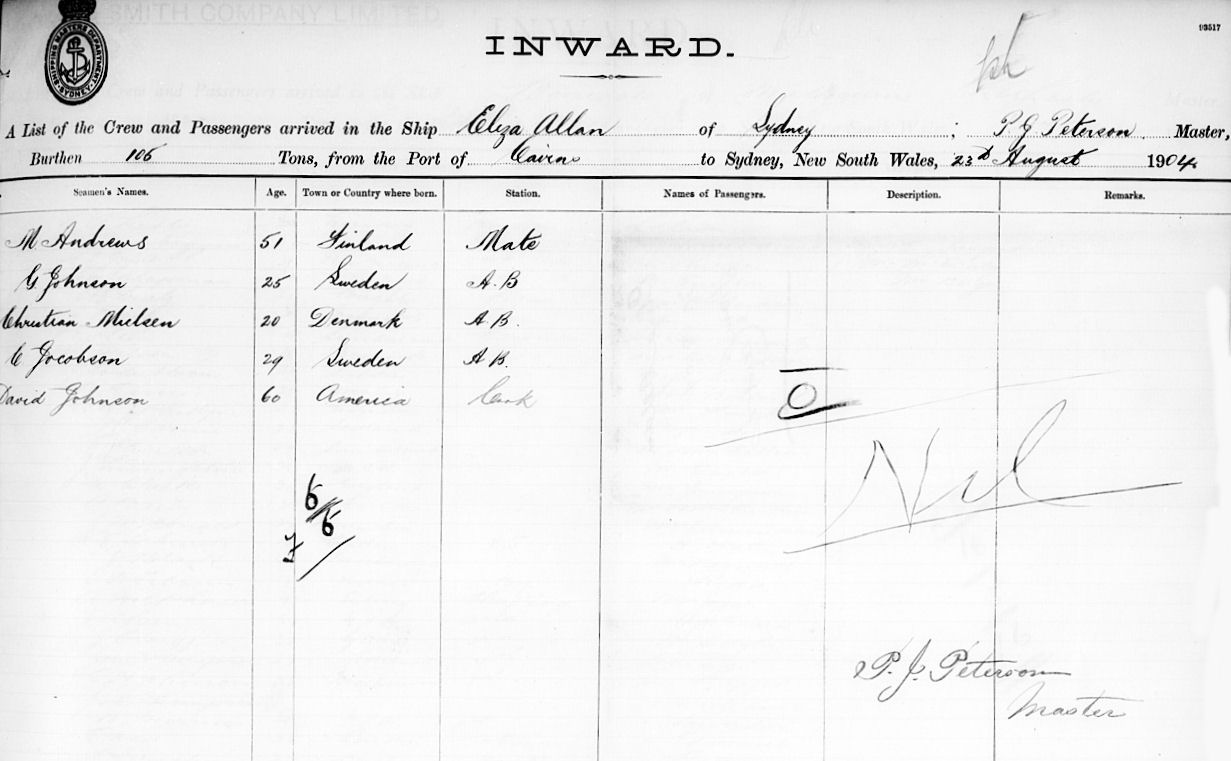 SHIPPING MASTERS DEPARTMENT SYDNEY
SMITH COMPANY LIMITED
93517
INWARD.
A List of the Crew and Passengers arrived in the Ship Eliza Allan of Sydney ; P G Peterson Master,
Burthen 106 Tons, from the Port of Cairns to Sydney, New South Wales, 23d August 1904
Seamen's Names. Age. Town or Country where born. Station. Names of Passengers. Description. Remarks.
M Andrews 51 Finland Mate
G Johnson 25 Sweden A.B
Christian Nielsen 20 Denmark A.B.
C Jocobson 29 Sweden A B.
David Johnson 60 America Cook
O
Nil
6/6
P. J. Peterson
Master